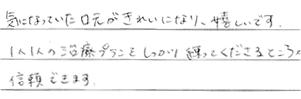 気になっていた口元がきれいになり、嬉しいです。
1人1人の治療プランをしっかり練ってくださるところへ
信頼できます。